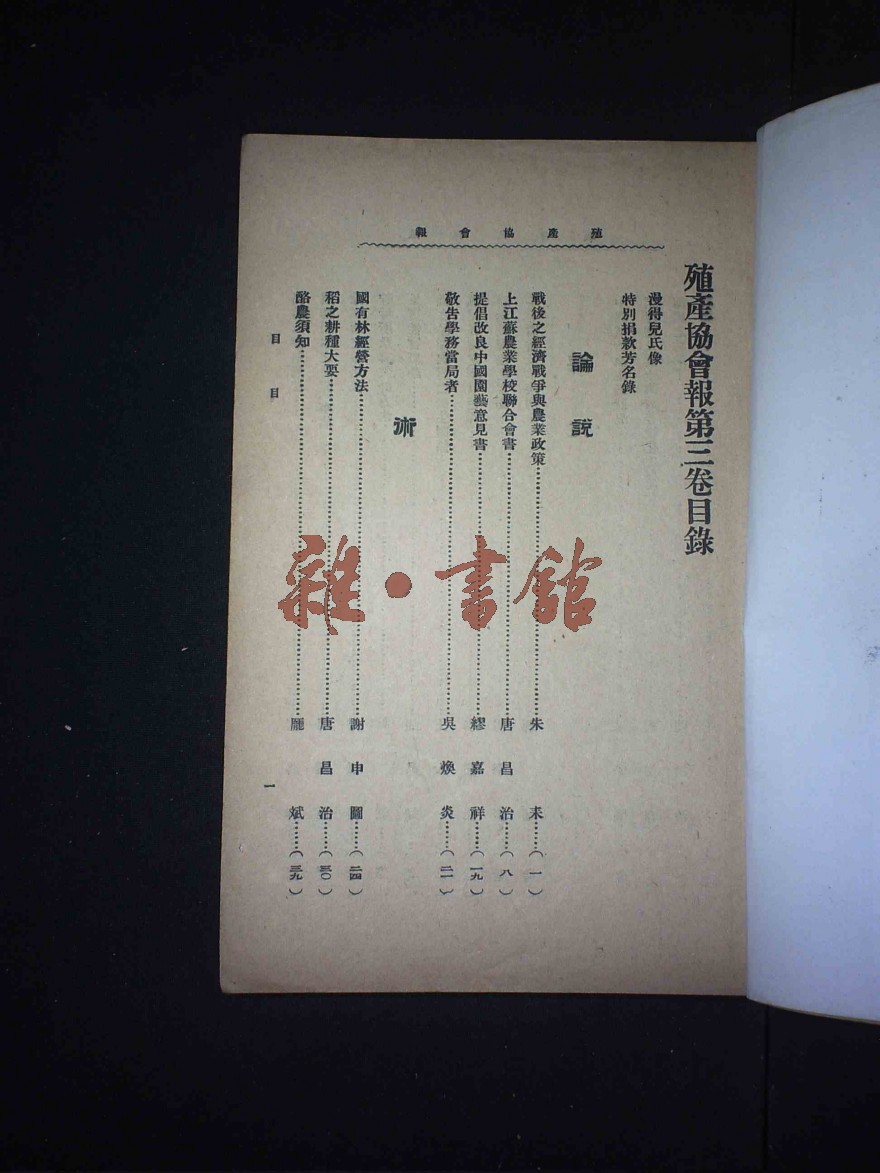 殖產協會報
殖產協會報第三卷目錄
漫得兒氏像
特別捐款芳名錄
論說
戰後之經濟戰爭與農業政策……朱 耒……(一)
上江蘇農業學校聯合會書……唐昌治……(八)
提倡改良中國園藝意見書……繆嘉祥……(一九)
敬告學務當局者……吳煥炎……(二一)
術
國有林經營方法……謝申圖……(二四)
稻之耕種大要……唐昌治……(三〇)
酪農須知……龐 斌……(三九)
目目
一
雜·書館